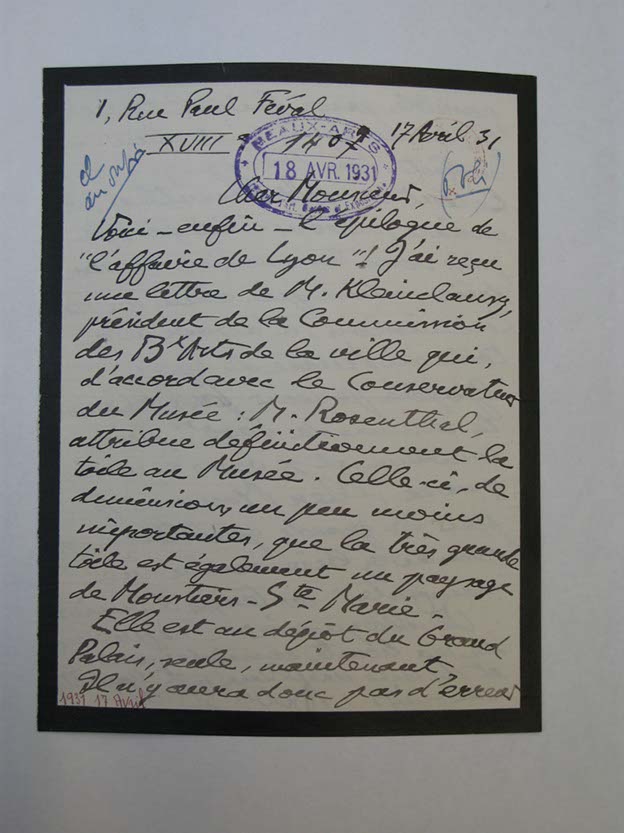 1, Rue Paul Féval
XVIII e 1407 17 Avril 31
BEAUX-ARTS
18 AVR. 1931
Cher Monsieur,
Voici - enfin - l'épilogue de
"l'affaire de Lyon"! J'ai reçu
une lettre de M. Kleinclausz,
président de la Commission
des Bx Arts de la ville qui,
d'accord avec le Conservateur
du Musée : M. Rosenthal,
attribue définitivement la
toile au Musée. Celle-ci, de
dimensions un peu moins
importantes, que la très grande
toile est également un paysage
de Moustiers-Ste Marie.
Elle est au dépôt du Grand
Palais, seule, maintenant.
Il n'y aura donc pas d'erreur
1931 17 Avril